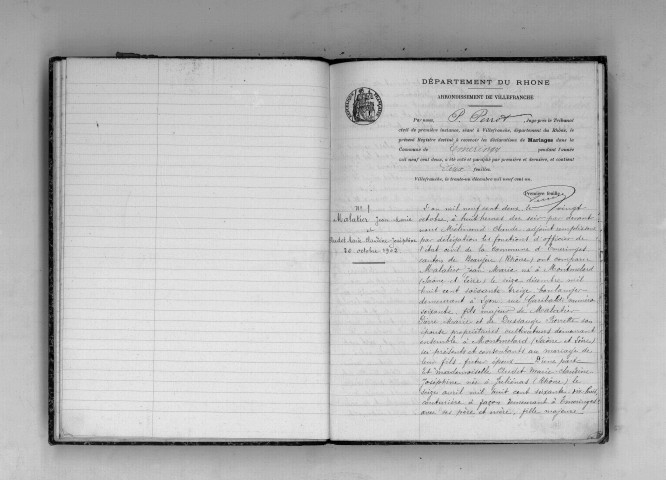 DÉPARTEMENT DU RHONE
ARRONDISSEMENT DE VILLEFRANCHE
Par nous, P. Perrot, Juge près le Tribunal
civil de première instance, séant à Villefranche, département du Rhône, le
présent Registre destiné à recevoir les déclarations de Mariages dans la
Commune de Emeringes pendant l'année
mil neuf cent deux, a été coté et paraphé par première et dernière, et contient
feuilles.
Villefranche, le trente-un décembre mil neuf cent un.
Première feuille,
N° 1
Malatier Jean Marie
et
Marie Claudine Josephine
20 octobre 1902
L'an mil neuf cent deux le vingt
octobre, à huit heures du soir par devant
nous Claude adjoint remplissant
par délégation les fonctions d'officier de
l'état civil de la commune d'Emeringes
canton de Beaujeu (Rhône) ont comparu
Malatier Jean Marie né à Montmelard
(Saône et Loire) le seize décembre mil
huit cent soixante treize boulanger
demeurant à Lyon rue Garibaldi, numéro
soixante, fils majeur de Malatier
Pierre Marie et de son
épouse propriétaires cultivateurs demeurant
ensemble à Montmelard (Saône et Loire)
ici présents et consentants au mariage de
leur fils, futur époux D'une part
Et mademoiselle Marie Claudine
Joséphine née à Juliénas (Rhône) le
seize avril mil huit cent soixante
couturière à façon demeurant à Emeringes
avec ses père et mère, fille majeure